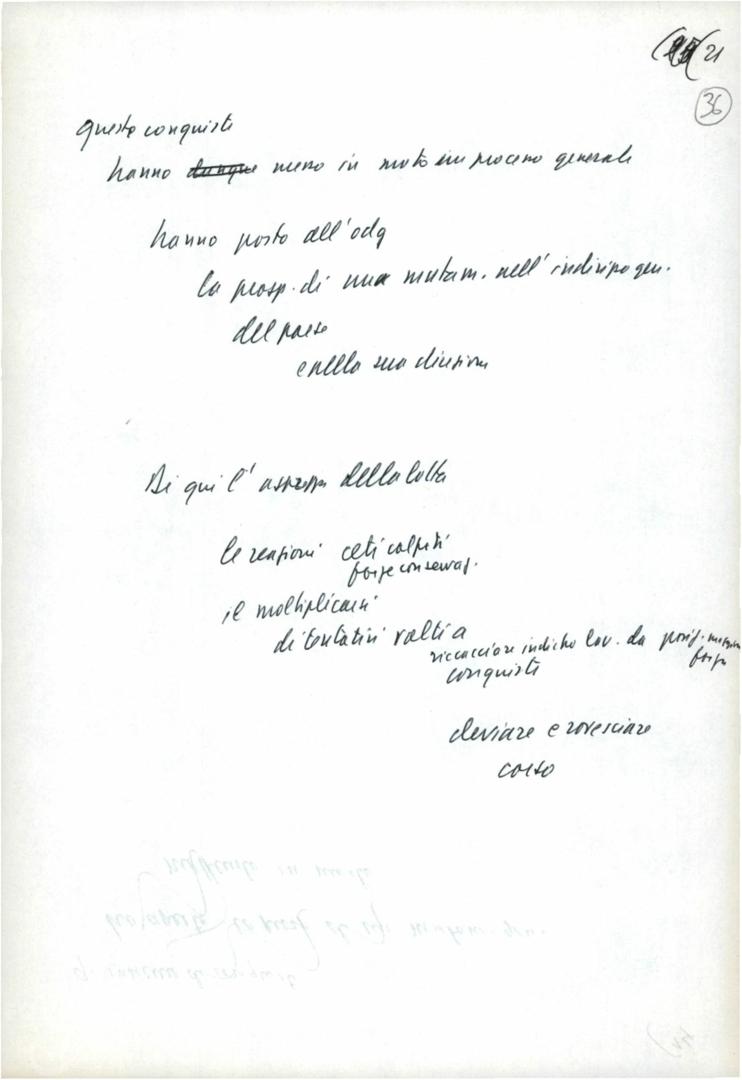 21
36
queste conquiste
hanno dunque messo in moto un processo generale
hanno posto all'odg
la prosp. di una mutam. nell'indirizzo gen.
del paese
e nella sua direzione
Di qui l'asprezza della lotta
le reazioni ceti colpiti
forze conservat.
il moltiplicarsi
di tentativi volti a
ricacciare indietro lav. da posiz.
conquiste
deviare e rovesciare
corso